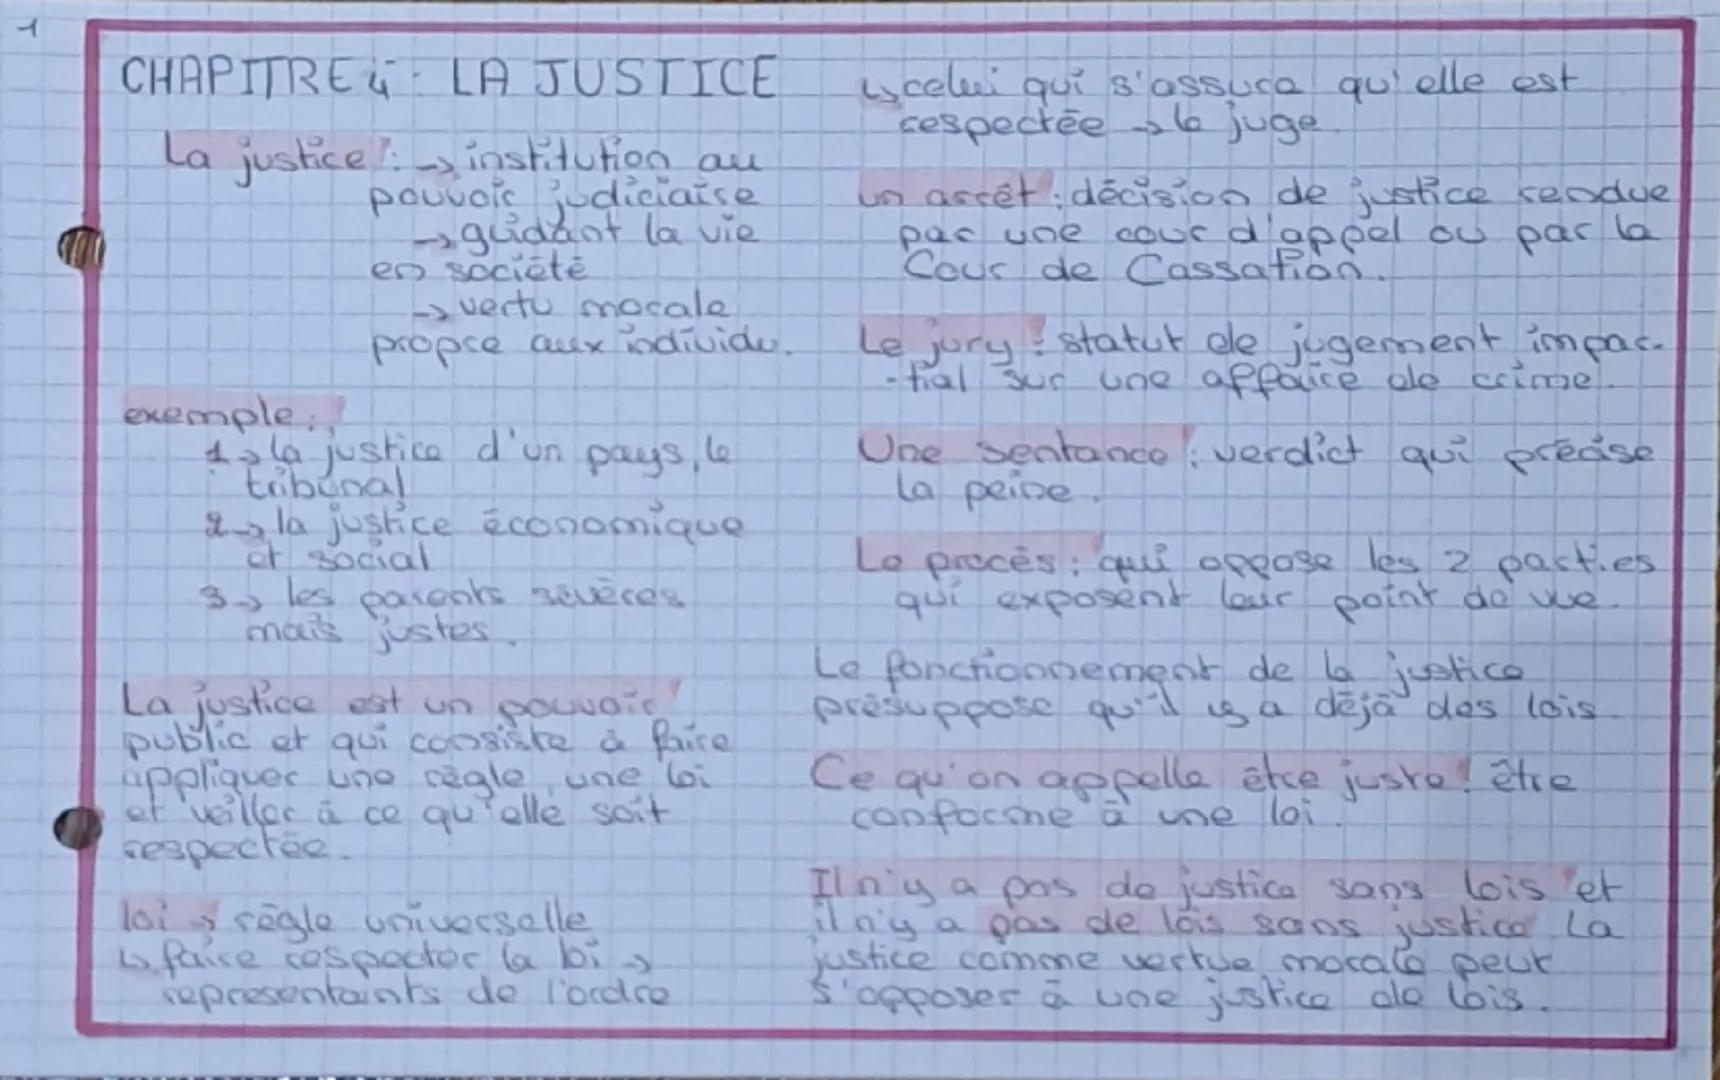 1
CHAPITRE 4 : LA JUSTICE
La justice : → institution au
pouvoir judiciaire
→ guidant la vie
en société
→ vertu morale
propre aux individu.
exemple :
1 → la justice d'un pays, le
tribunal
2 → la justice économique
et social
3 → les parents sévères
mais justes.
La justice est un pouvoir
public et qui consiste à faire
appliquer une règle, une loi
et veiller à ce qu'elle soit
respectée.
loi → règle universelle
↳ faire respecter la loi →
représentants de l'ordre
↳ celui qui s'assure qu'elle est
respectée → le juge.
un arrêt : décision de justice rendue
par une cour d'appel ou par la
Cour de Cassation.
Le jury : statut de jugement impar-
-tial sur une affaire de crime.
Une sentance : verdict qui précise
la peine.
Le procès : qui oppose les 2 parties
qui exposent leur point de vue.
Le fonctionnement de la justice
présuppose qu'il y a déjà des lois
Ce qu'on appelle être juste : être
conforme à une loi.
Il n'y a pas de justice sans lois et
il n'y a pas de lois sans justice La
justice comme vertue morale peut
s'opposer à une justice de lois.